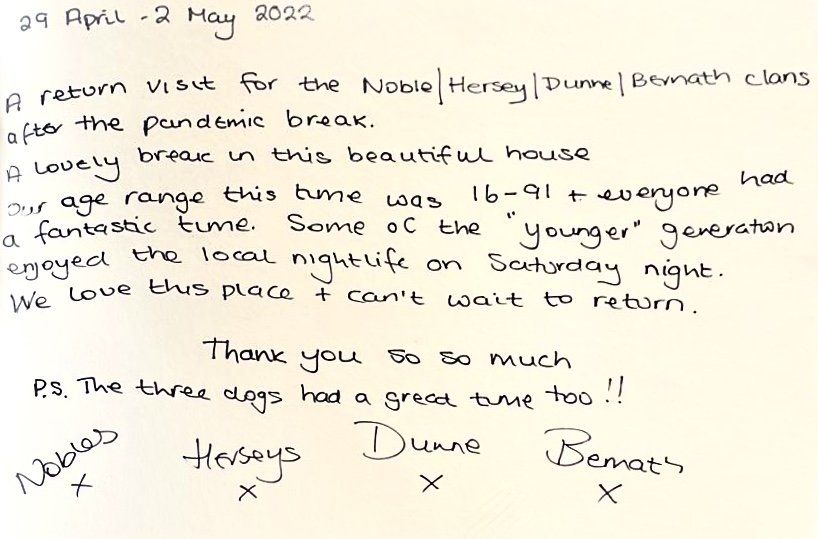 29 April - 2 May 2022
A return visit for the Noble|Hersey|Dunne|Bernath clans
after the pandemic break.
A lovely break in this beautiful house
our age range this time was 16-91 + everyone had
a fantastic time. Some of the "younger" generation
enjoyed the local nightlife on Saturday night.
We love this place + can't wait to return.
Thank you so so much
P.S. The three dogs had a great time too!!
Nobles Herseys Dunne Bernath
x x x x